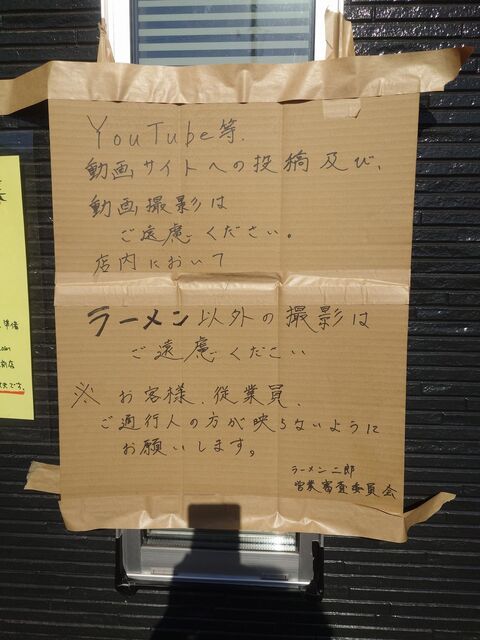 YouTube等、
動画サイトへの投稿及び、
動画撮影は
ご遠慮ください。
店内において
ラーメン以外の撮影は
ご遠慮ください
※ お客様、従業員、
ご通行人の方が映らないように
お願いします。
ラーメン二郎
営業審査委員会
準備